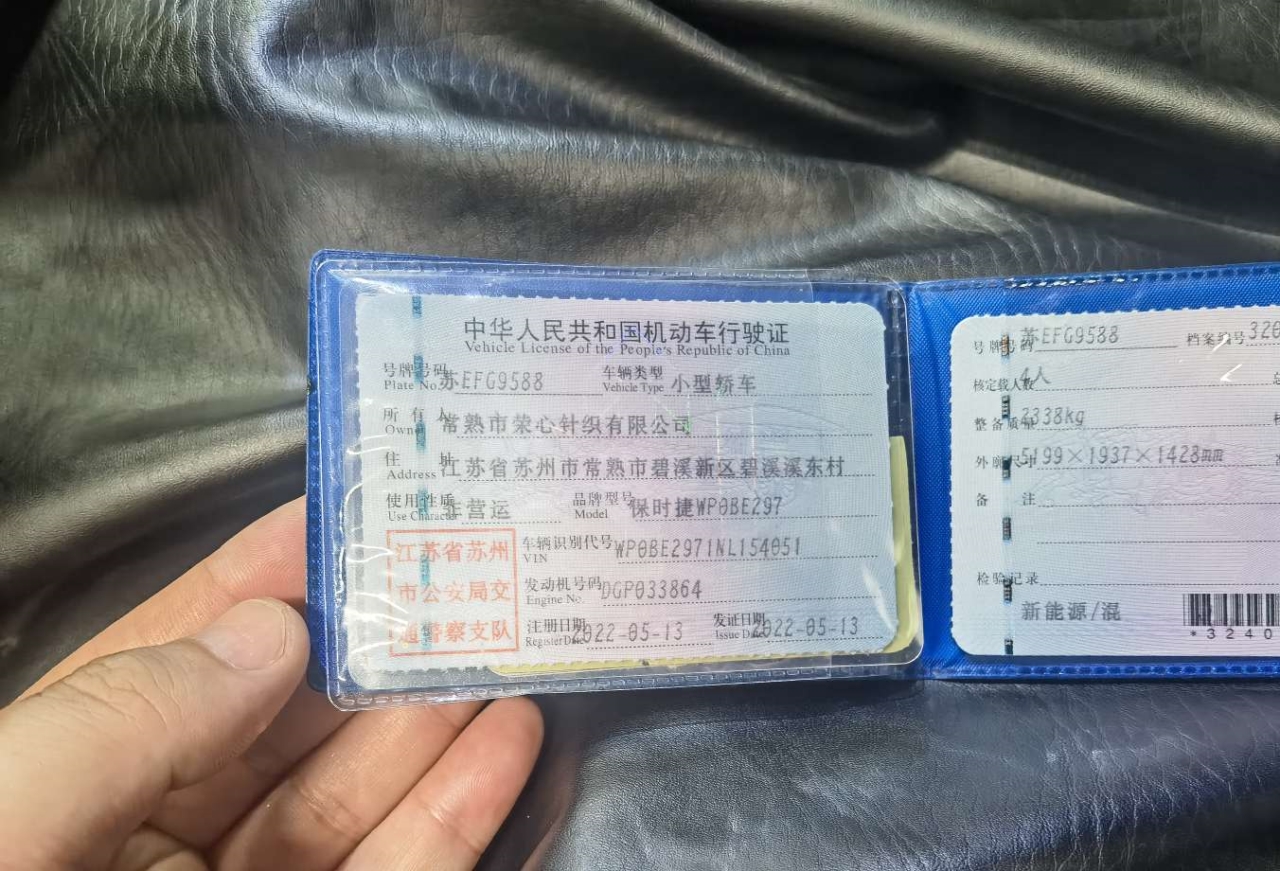 中华人民共和国机动车行驶证
Vehicle License of the People's Republic of China
号牌号码 苏EFG9588 车辆类型 小型轿车
Plate No. Vehicle Type
所有人 常熟市荣心针织有限公司
Owner
住址 江苏省苏州市常熟市碧溪新区碧溪溪东村
Address
使用性质 非营运 品牌型号 保时捷WP0BE297
Use Character Model
江苏省苏州
市公安局交
通警察支队
车辆识别代号 WP0BE2971NL154051
VIN
发动机号码 DGP033864
Engine No.
注册日期 2022-05-13 发证日期 2022-05-13
Register Date Issue Date
号牌号码 苏EFG9588 档案编号 320
核定载人数 4人
整备质量 2338kg
外廓尺寸 5199×1937×1428mm
备注
检验记录
新能源/混
*3240